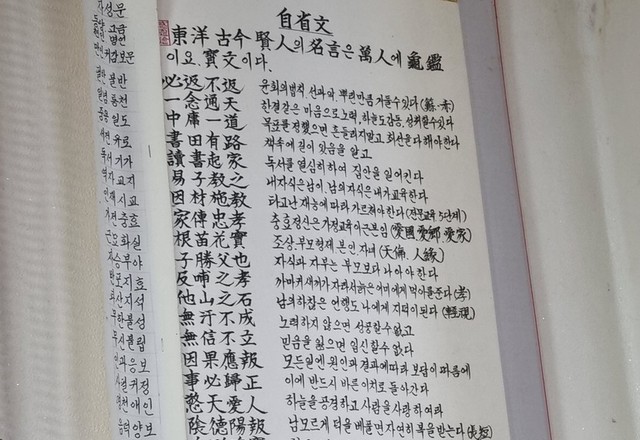 자성문
동양 고금
현인 명언
만인 귀감보문
불반
일념 통천
중용 일도
서전 유로
독서 기가
역자 교지
인재 시교
가전 충효
근묘 화실
자승부야
반포지효
타산지석
무한불성
무신불립
인과응보
사필귀정
경천애인
음덕양보
自省文
東洋古今 賢人의 名言은 萬人에 龜鑑
이요. 寶文이다.
必返不返 윤회의법칙 선과악. 뿌린만큼 거둘수있다
一念通天 한결같은 마음으로노력, 하늘도감동, 성취할수있다
中庸一道 목표를 정했으면 흔들리지말고, 최선을다해야한다
書田有路 책속에 길이 있음을 알고
讀書起家 독서를 열심히하여 집안을 일어킨다
易子教之 내자식은남이, 남의자식은내가교육한다
因材施教 타고난 재능에 따라 가르쳐야한다 (전문교육 5단계)
家傳忠孝 충효정신은 가정교육이근본임 (愛國 愛鄉, 愛家)
根苗花實 조상.부모형제 본인.자녀 (天倫. 人緣)
子勝父也 자식과 자부는 부모보다 나아야 한다
反哺之孝 까마귀새끼가 자라서늙은어미에게 먹이를준다 (孝)
他山之石 남의하찮은 언행도 나에게 지덕이된다
無汗不成 노력하지 않으면 성공할수없고
無信不立 믿음을 잃으면 임신할수 없다
因果應報 모든일엔 원인과 결과에따라 보답이 따름에
事必歸正 이에 반드시 바른이치로 돌아간다
敬天愛人 하늘을 공경하고 사람을 사랑하여라
陰德陽報 남모르게 덕을 베풀면 자연히 복을 받는다